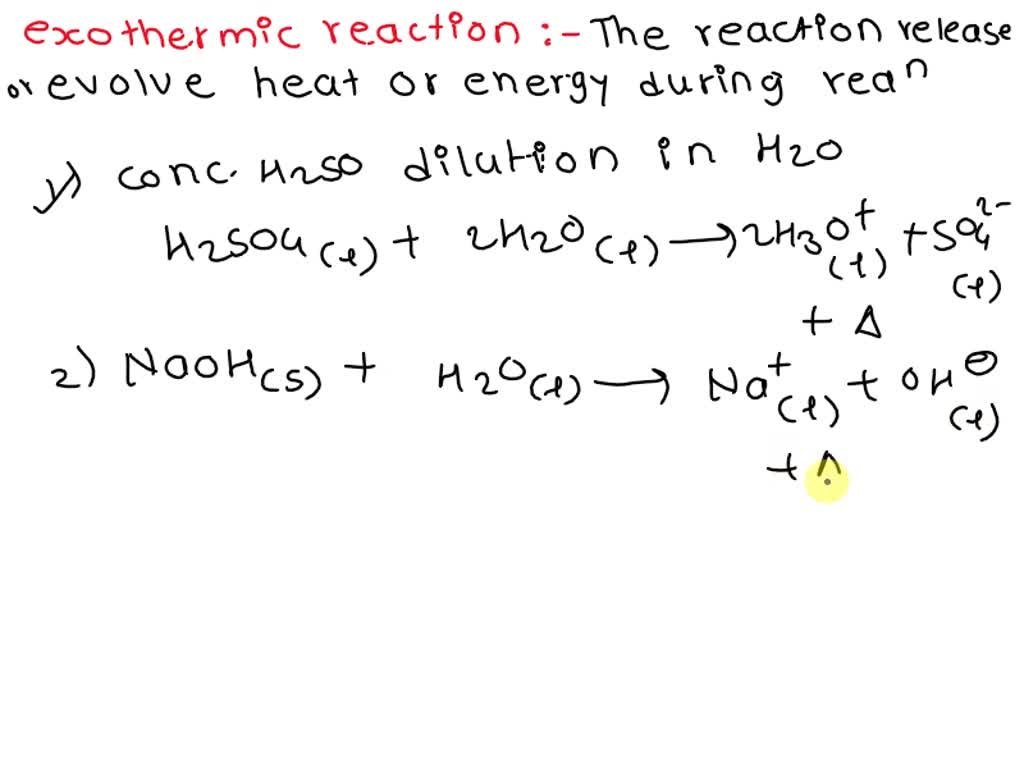 exothermic reaction :- The reaction release
or evolve heat or energy during reaⁿ
1) conc. H2SO dilution in H2O
H2SO4(l) + 2H2O(l) → 2H3O⁺(l) + SO4²⁻(l)
+ Δ
2) NaOH(s) + H2O(l) → Na⁺(l) + OH⊖(l)
+ Δ